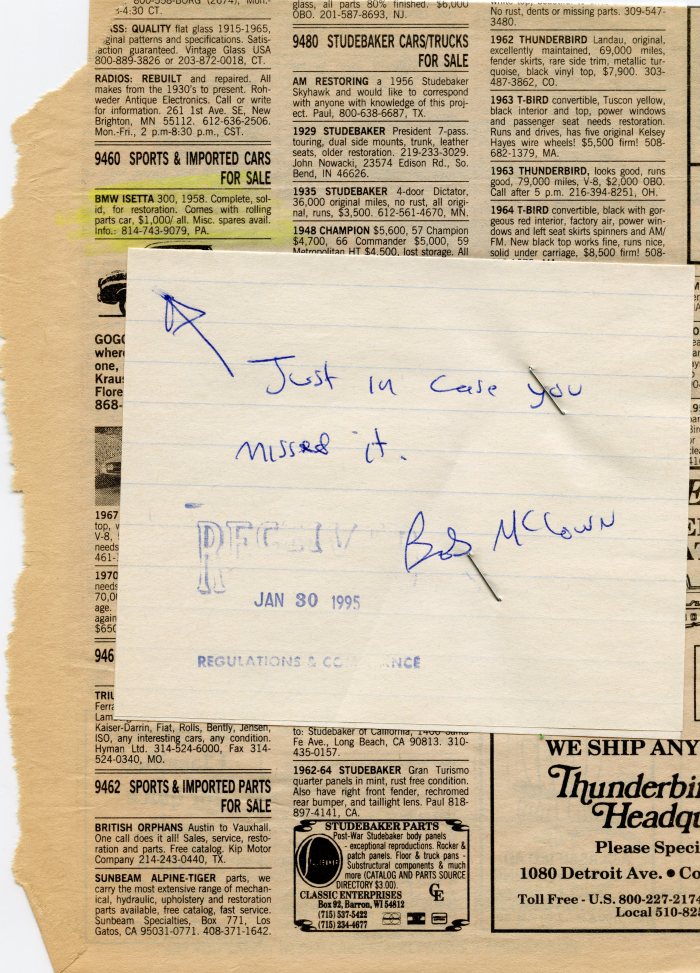 -4:30 CT.
SS: QUALITY flat glass 1915-1965,
ginal patterns and specifications. Satis-
action guaranteed. Vintage Glass USA
800-889-3826 or 203-872-0018, CT.
RADIOS: REBUILT and repaired. All
makes from the 1930's to present. Roh-
weder Antique Electronics. Call or write
for information. 261 1st Ave. SE, New
Brighton, MN 55112. 612-636-2506.
Mon.-Fri., 2 p.m-8:30 p.m., CST.
9460 SPORTS & IMPORTED CARS
FOR SALE
BMW ISETTA 300, 1958. Complete, sol-
id, for restoration. Comes with rolling
parts car, $1,000/ all. Misc. spares avail.
Info.: 814-743-9079, PA.
GOGO
where
one,
Kraus
Flore
868-
1967
top, w
V-8,
needs
461-
1970
needs
70,0
age.
again
$650
946
TRIU
Ferra
Lam
Kaiser-Darrin, Fiat, Rolls, Bently, Jensen,
ISO, any interesting cars, any condition.
Hyman Ltd. 314-524-6000, Fax 314-
524-0340, MO.
9462 SPORTS & IMPORTED PARTS
FOR SALE
BRITISH ORPHANS Austin to Vauxhall.
One call does it all! Sales, service, resto-
ration and parts. Free catalog. Kip Motor
Company 214-243-0440, TX.
SUNBEAM ALPINE-TIGER parts, we
carry the most extensive range of mechan-
ical, hydraulic, upholstery and restoration
parts available, free catalog, fast service.
Sunbeam Specialties, Box 771, Los
Gatos, CA 95031-0771. 408-371-1642.
glass, all parts 80% finished. $6,000
OBO. 201-587-8693, NJ.
9480 STUDEBAKER CARS/TRUCKS
FOR SALE
AM RESTORING a 1956 Studebaker
Skyhawk and would like to correspond
with anyone with knowledge of this proj-
ect. Paul, 800-638-6687, TX.
1929 STUDEBAKER President 7-pass.
touring, dual side mounts, trunk, leather
seats, older restoration. 219-233-3029.
John Nowacki, 23574 Edison Rd., So.
Bend, IN 46626.
1935 STUDEBAKER 4-door Dictator,
36,000 original miles, no rust, all orig-
inal, runs, $3,500. 612-561-4670, MN.
1948 CHAMPION $5,600, 57 Champion
$4,700, 66 Commander $5,000, 59
Metropolitan HT $4,500, lost storage. All
Just in case you
missed it.
Bob McClown
RECEIV
JAN 30 1995
REGULATIONS & CO NCE
to: Studebaker of California, 1400 Santa
Fe Ave., Long Beach, CA 90813. 310-
435-0157.
1962-64 STUDEBAKER Gran Turismo
quarter panels in mint, rust free condition.
Also have right front fender, rechromed
rear bumper, and taillight lens. Paul 818-
897-4141, CA.
STUDEBAKER PARTS
Post-War Studebaker body panels
- exceptional reproductions. Rocker &
patch panels. Floor & truck pans -
Substructural components & much
more (CATALOG AND PARTS SOURCE
DIRECTORY $3.00).
CLASSIC ENTERPRISES
Box 92, Barron, WI 54812
(715) 537-5422
(715) 234-4677
CE
No rust, dents or missing parts. 309-547-
3480.
1962 THUNDERBIRD Landau, original,
excellently maintained, 69,000 miles,
fender skirts, rare side trim, metallic tur-
quoise, black vinyl top, $7,900. 303-
487-3862, CO.
1963 T-BIRD convertible, Tuscon yellow,
black interior and top, power windows
and passenger seat needs restoration.
Runs and drives, has five original Kelsey
Hayes wire wheels! $5,500 firm! 508-
682-1379, MA.
1963 THUNDERBIRD, looks good, runs
good, 79,000 miles, V-8, $2,000 OBO.
Call after 5 p.m. 216-394-8251, OH.
1964 T-BIRD convertible, black with gor-
geous red interior, factory air, power win-
dows and left seat skirts spinners and AM/
FM. New black top works fine, runs nice,
solid under carriage, $8,500 firm! 508-
WE SHIP ANY
Thunderbi
Headqu
Please Speci
1080 Detroit Ave. • Co
Toll Free - U.S. 800-227-217
Local 510-82